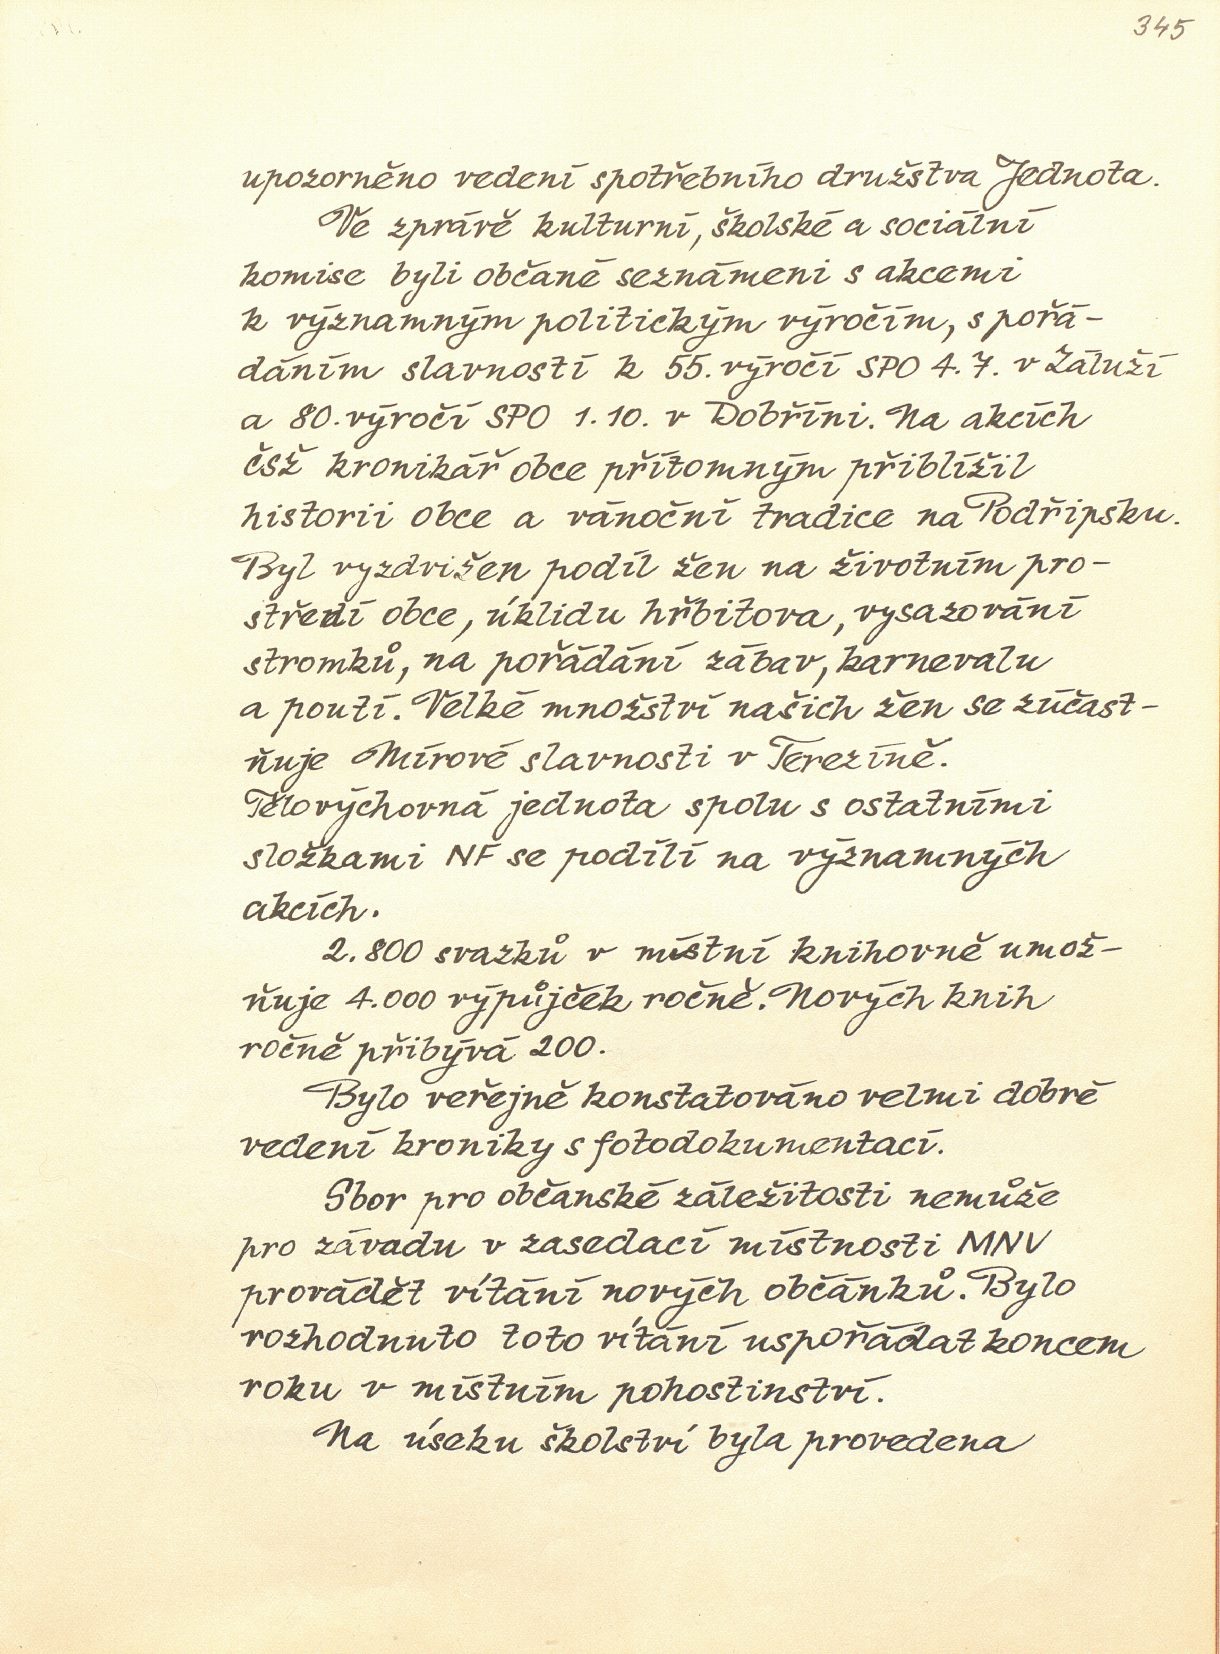 345
upozorněno vedení spotřebního družstva Jednota.
Ve zprávě kulturní, školské a sociální
komise byli občané seznámeni s akcemi
k významným politickým výročím, s pořá-
dáním slavností k 55. výročí SPO 4. 7. v Záluží
a 80. výročí SPO 1. 10. v Dobříni. Na akcích
čsž kronikář obce přítomným přiblížil
historii obce a vánoční tradice na Podřipsku.
Byl vyzdvižen podíl žen na životním pro-
středí obce, úklidu hřbitova, vysazování
stromků, na pořádání zábav, karnevalu
a poutí. Velké množství našich žen se zúčast-
ňuje Mírové slavnosti v Terezíně.
Tělovýchovná jednota spolu s ostatními
složkami NF se podílí na významných
akcích.
2.800 svazků v místní knihovně umož-
ňuje 4.000 výpůjček ročně. Nových knih
ročně přibývá 200.
Bylo veřejně konstatováno velmi dobré
vedení kroniky s fotodokumentací.
Sbor pro občanské záležitosti nemůže
pro závadu v zasedací místnosti MNV
provádět vítání nových občánků. Bylo
rozhodnuto toto vítání uspořádat koncem
roku v místním pohostinství.
Na úseku školství byla provedena